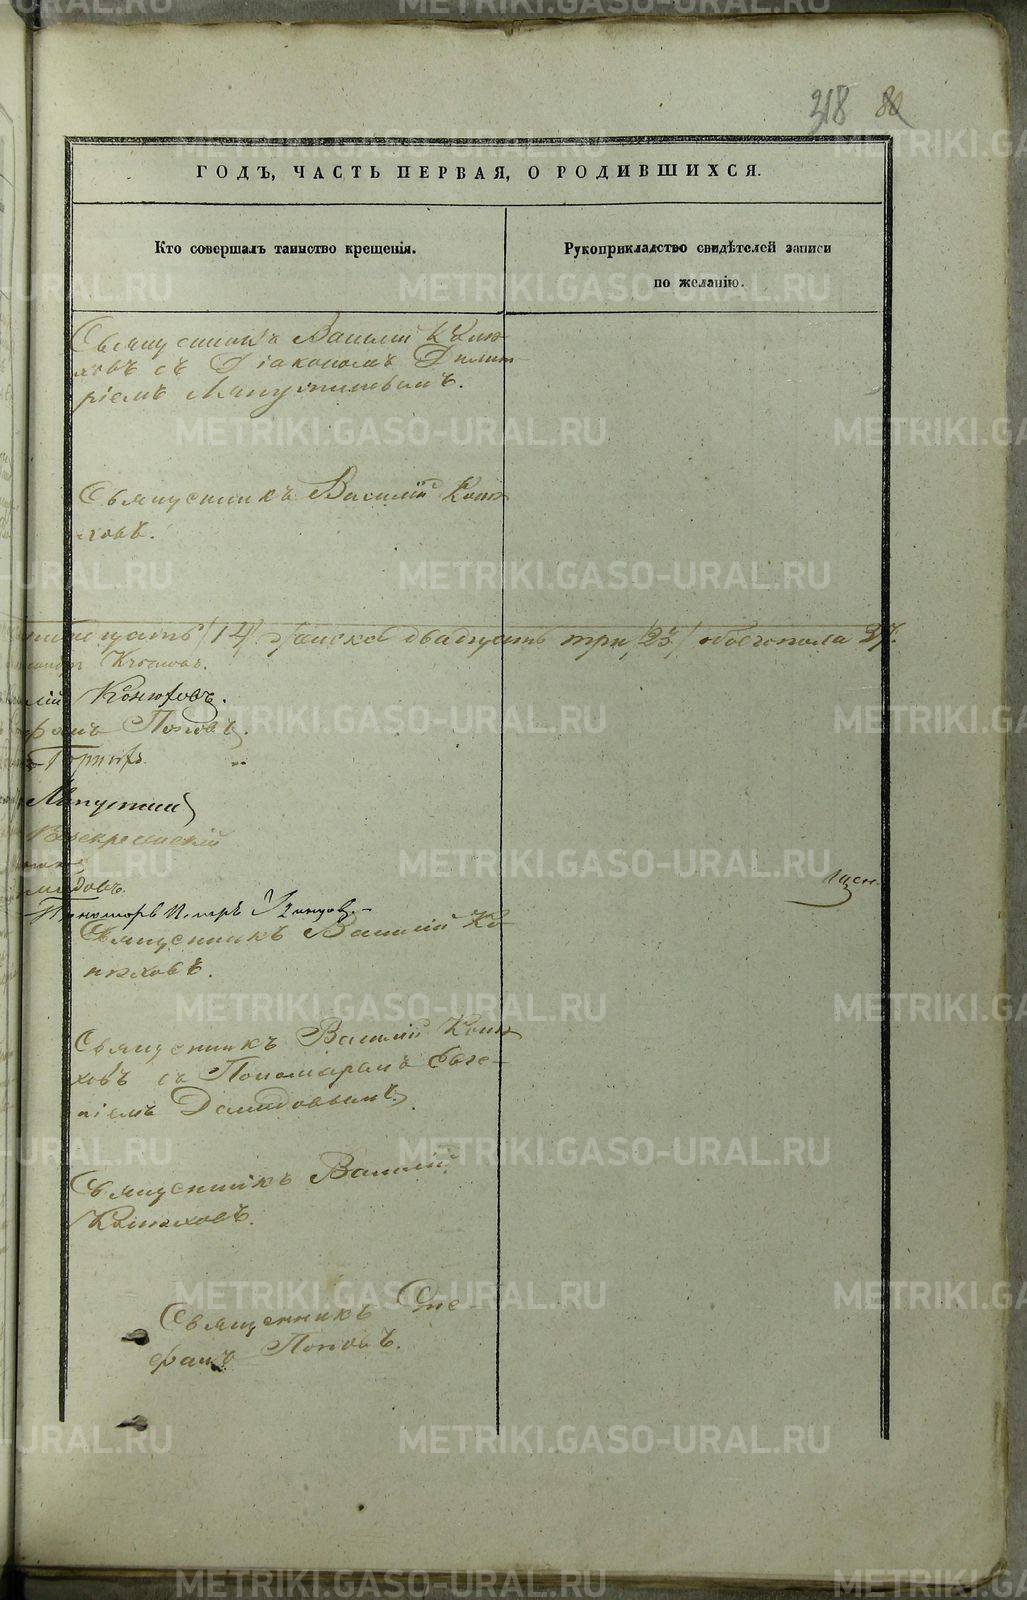 318 80
ГОДЪ, ЧАСТЬ ПЕРВАЯ, О РОДИВШИХСЯ.
Кто совершалъ таинство крещенія.
Рукоприкладство свидѣтелей записи
по желанію.
Священникъ Василій Коню-
ховъ съ Діакономъ Димит-
ріемъ
Священникъ Василій Коню-
ховъ.
/14/ женска двадцать три /23/ обоего пола 37.
Конюховъ.
Поповъ.
Воскресенскій
Пономарь Петръ
Священникъ Василій Ко-
нюховъ.
Священникъ Василій Коню-
ховъ съ Пономаремъ Евге-
ніемъ Демидовымъ.
Священникъ Василій
Конюховъ.
Священникъ Сте-
фанъ Поповъ.
METRIKI.GASO-URAL.RU